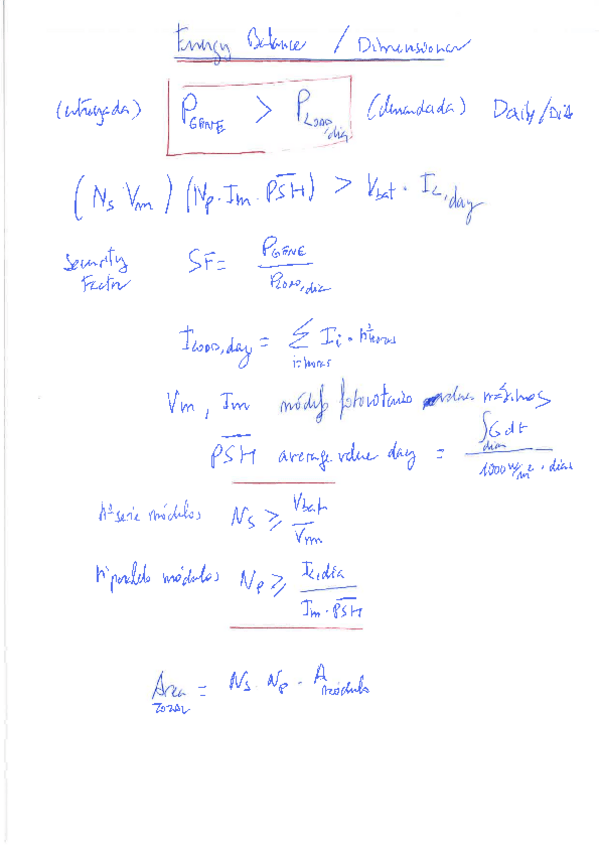 Energy Balance / Dimensionar
(entregada) P_GENE > P_LOAD,dia (demandada) Daily/Dia
(Ns·Vm) (Np·Im·P̅S̅H̅) > Vbat · I_L,day
Security Factor SF = P_GENE / P_LOAD,dia
I_LOAD,day = Σ_i=horas Ii · nº horas
Vm, Im módulo fotovoltaico values máximos
P̅S̅H̅ average value day = ∫_dias G dt / 1000 W/m² · dias
nº serie módulos Ns ⩾ Vbat / Vm
nº paralelo módulos Np ⩾ I_L,dia / Im · P̅S̅H̅
Area_TOTAL = Ns · Np · A_módulo